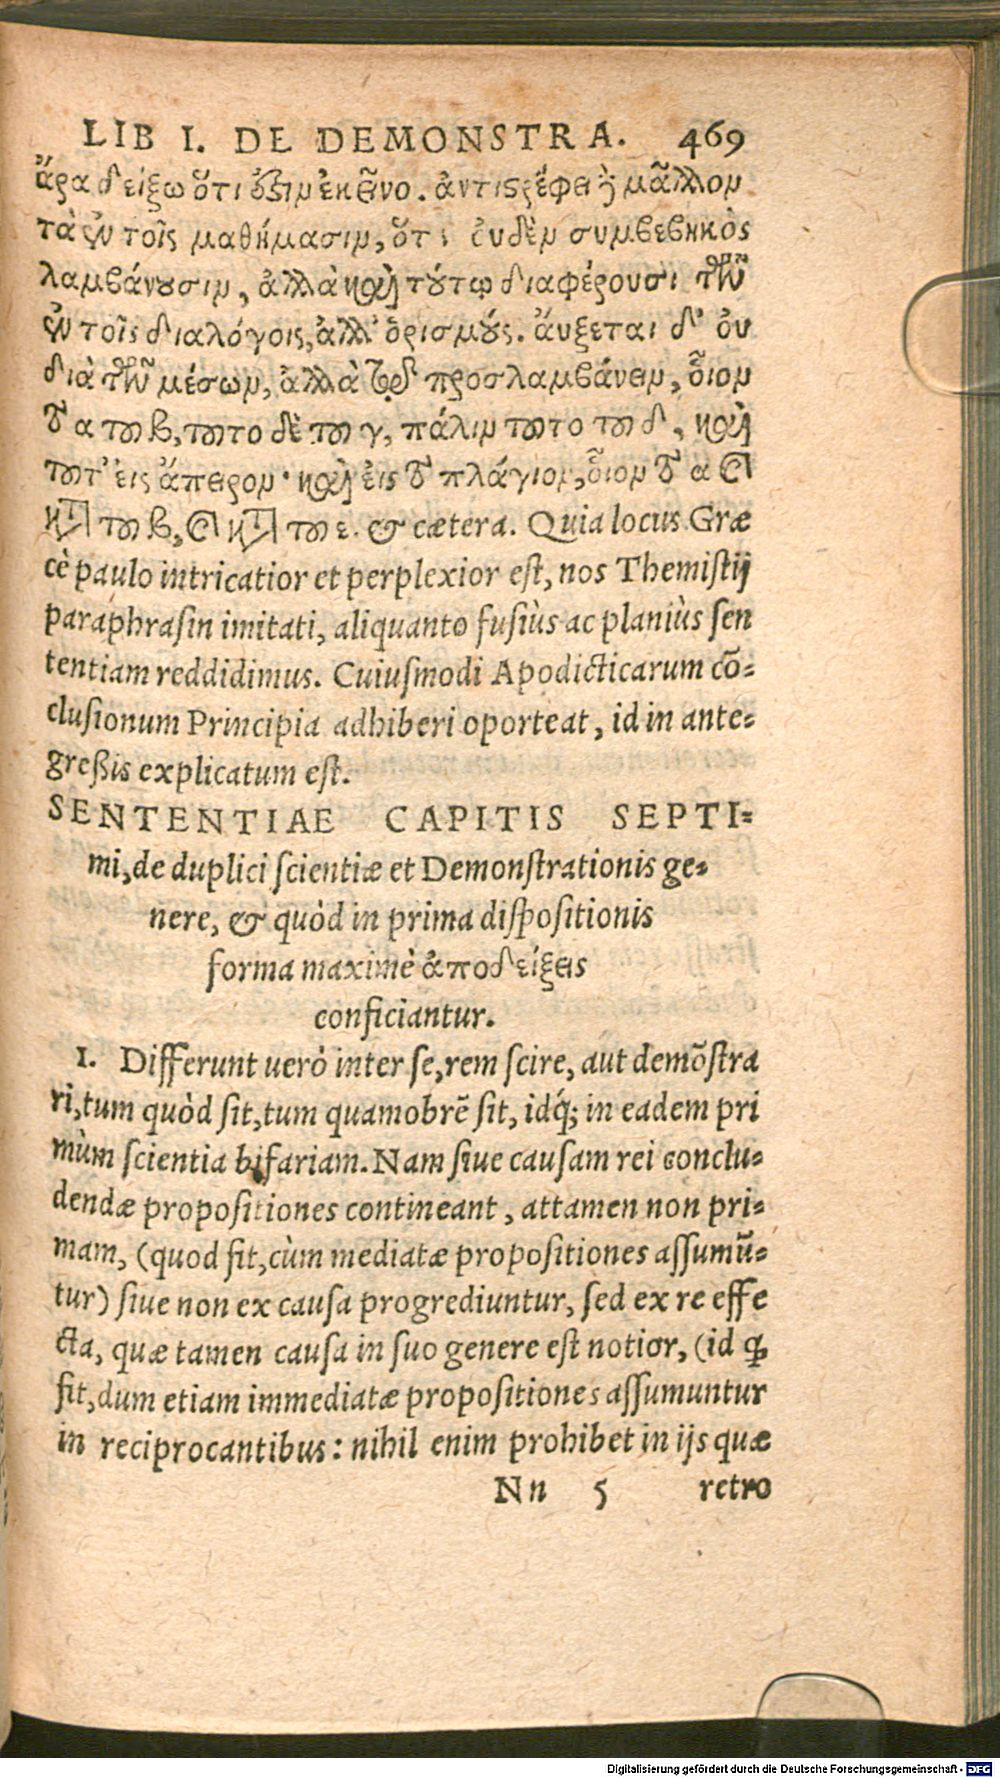 LIB I. DE DEMONSTRA. 469
ἄρα δείξω ὅτι ὅϛιμ ἐκεῖνο. ἀντιϛρέφει ἢ μᾶλλομ
τὰ ἐν τοῖς μαθήμασιμ, ὅτι οὐδὲμ συμβεβηκὸς
λαμβάνουσιμ, ἀλλὰ καὶ τούτῳ διαφέρουσι τῶν
ἐν τοῖς διαλόγοις, ἀλλ' ὁρισμούς. ἄυξεται δ' ὀυ
διὰ τῶν μέσωμ, ἀλλὰ τῷ προσλαμβάνειμ, ὅιομ
τὸ α του β, τουτο δὲ του γ, πάλιμ τουτο του δ, καὶ
τουτ' εἰς ἄπειρομ· καὶ ἐις τὸ πλάγιομ, ὅιομ τὸ α καὶ
κατὰ του β, καὶ κατὰ του ε. & cætera. Quia locus Græ
cè paulo intricatior et perplexior est, nos Themistij
paraphrasin imitati, aliquanto fusiùs ac planiùs sen
tentiam reddidimus. Cuiusmodi Apodicticarum cõ-
clusionum Principia adhiberi oporteat, id in ante-
greßis explicatum est.
SENTENTIAE CAPITIS SEPTI-
mi, de duplici scientiæ et Demonstrationis ge-
nere, & quòd in prima dispositionis
forma maximè ἀποδείξεις
conficiantur.
1. Differunt verò inter se, rem scire, aut demõstra
ri, tum quòd sit, tum quamobrẽ sit, idq́; in eadem pri
mùm scientia bifariam. Nam siue causam rei conclu-
dendæ propositiones contineant, attamen non pri-
mam, (quod fit, cùm mediatæ propositiones assumũ-
tur) siue non ex causa progrediuntur, sed ex re effe
cta, quæ tamen causa in suo genere est notior, (id ꝙ
fit, dum etiam immediatæ propositiones assumuntur
in reciprocantibus: nihil enim prohibet in ijs quæ
Nn 5 retro
Digitalisierung gefördert durch die Deutsche Forschungsgemeinschaft - DFG